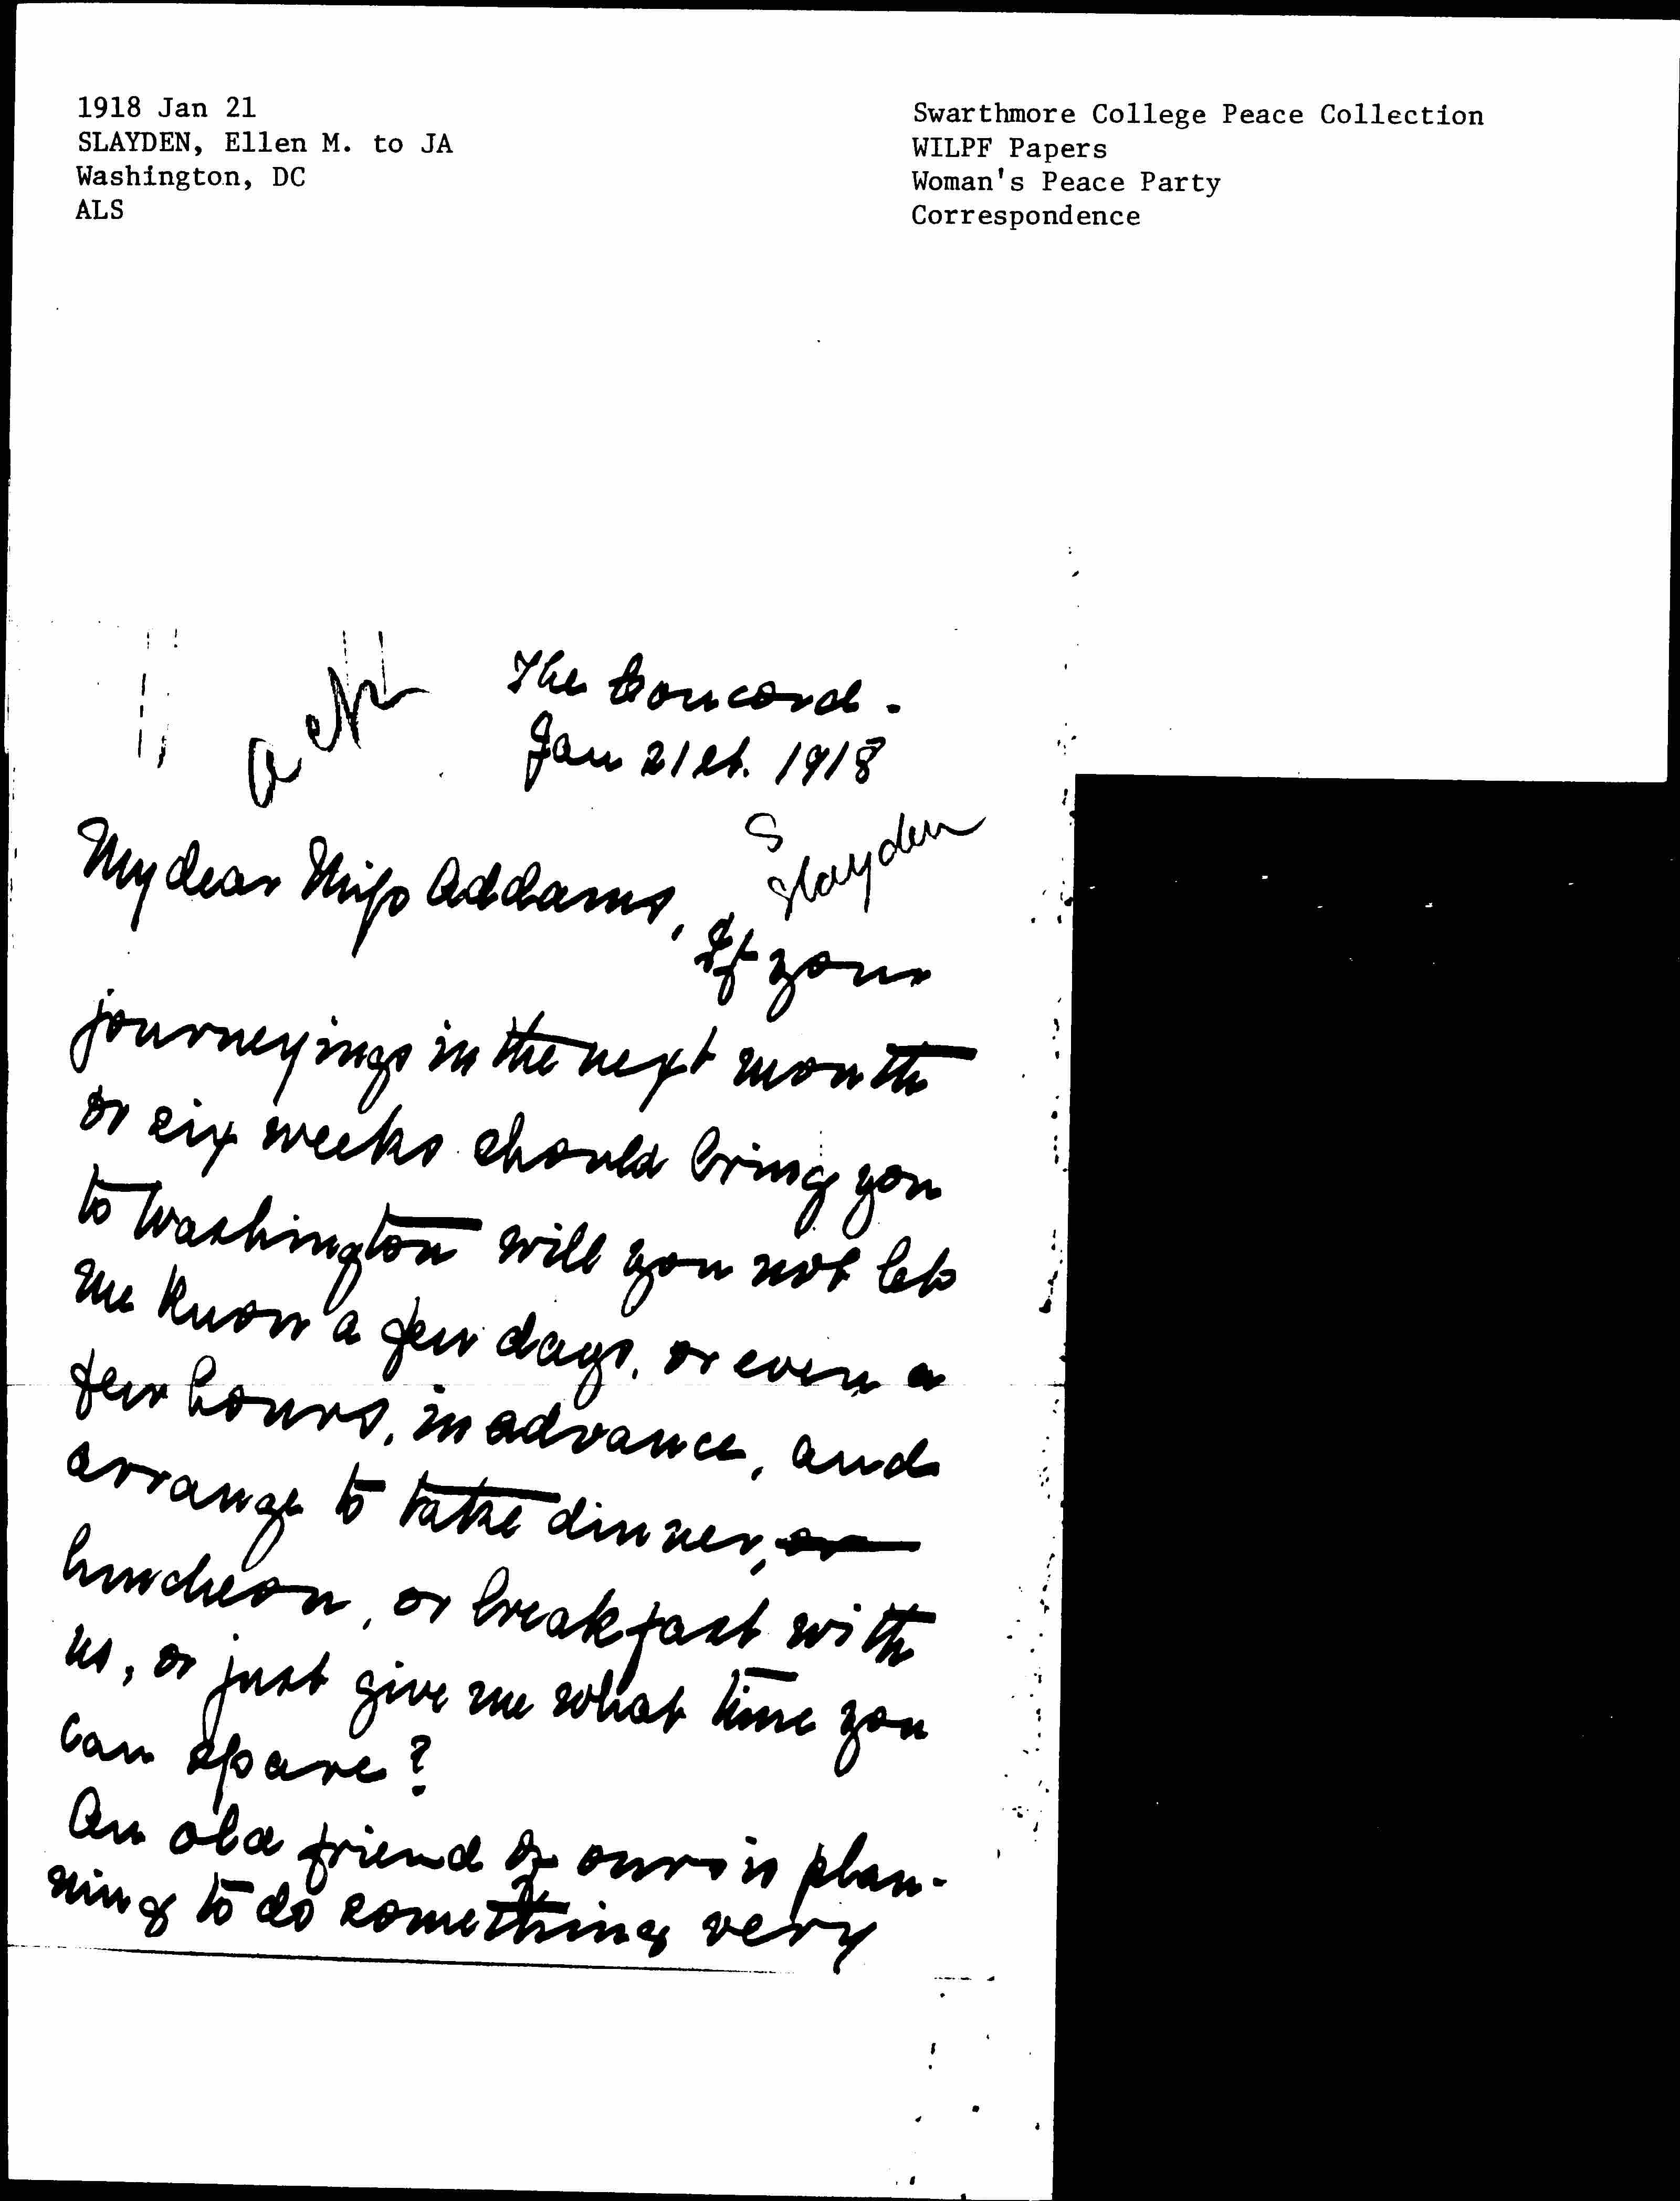 1918 Jan 21
SLAYDEN, Ellen M. to JA
Washington, DC
ALS
Swarthmore College Peace Collection
WILPF Papers
Woman's Peace Party
Correspondence
The Concord.
Jan 21st. 1918
S
Slayden
My dear Miss Addams,
If your
journeyings in the next month
or six weeks should bring you
to Washington will you not let
me know a few days, or even a
few hours, in advance, and
arrange to take dinner, or
luncheon, or breakfast with
us, or just give me what time you
can spare?
An old friend of ours is plan-
ning to do something very